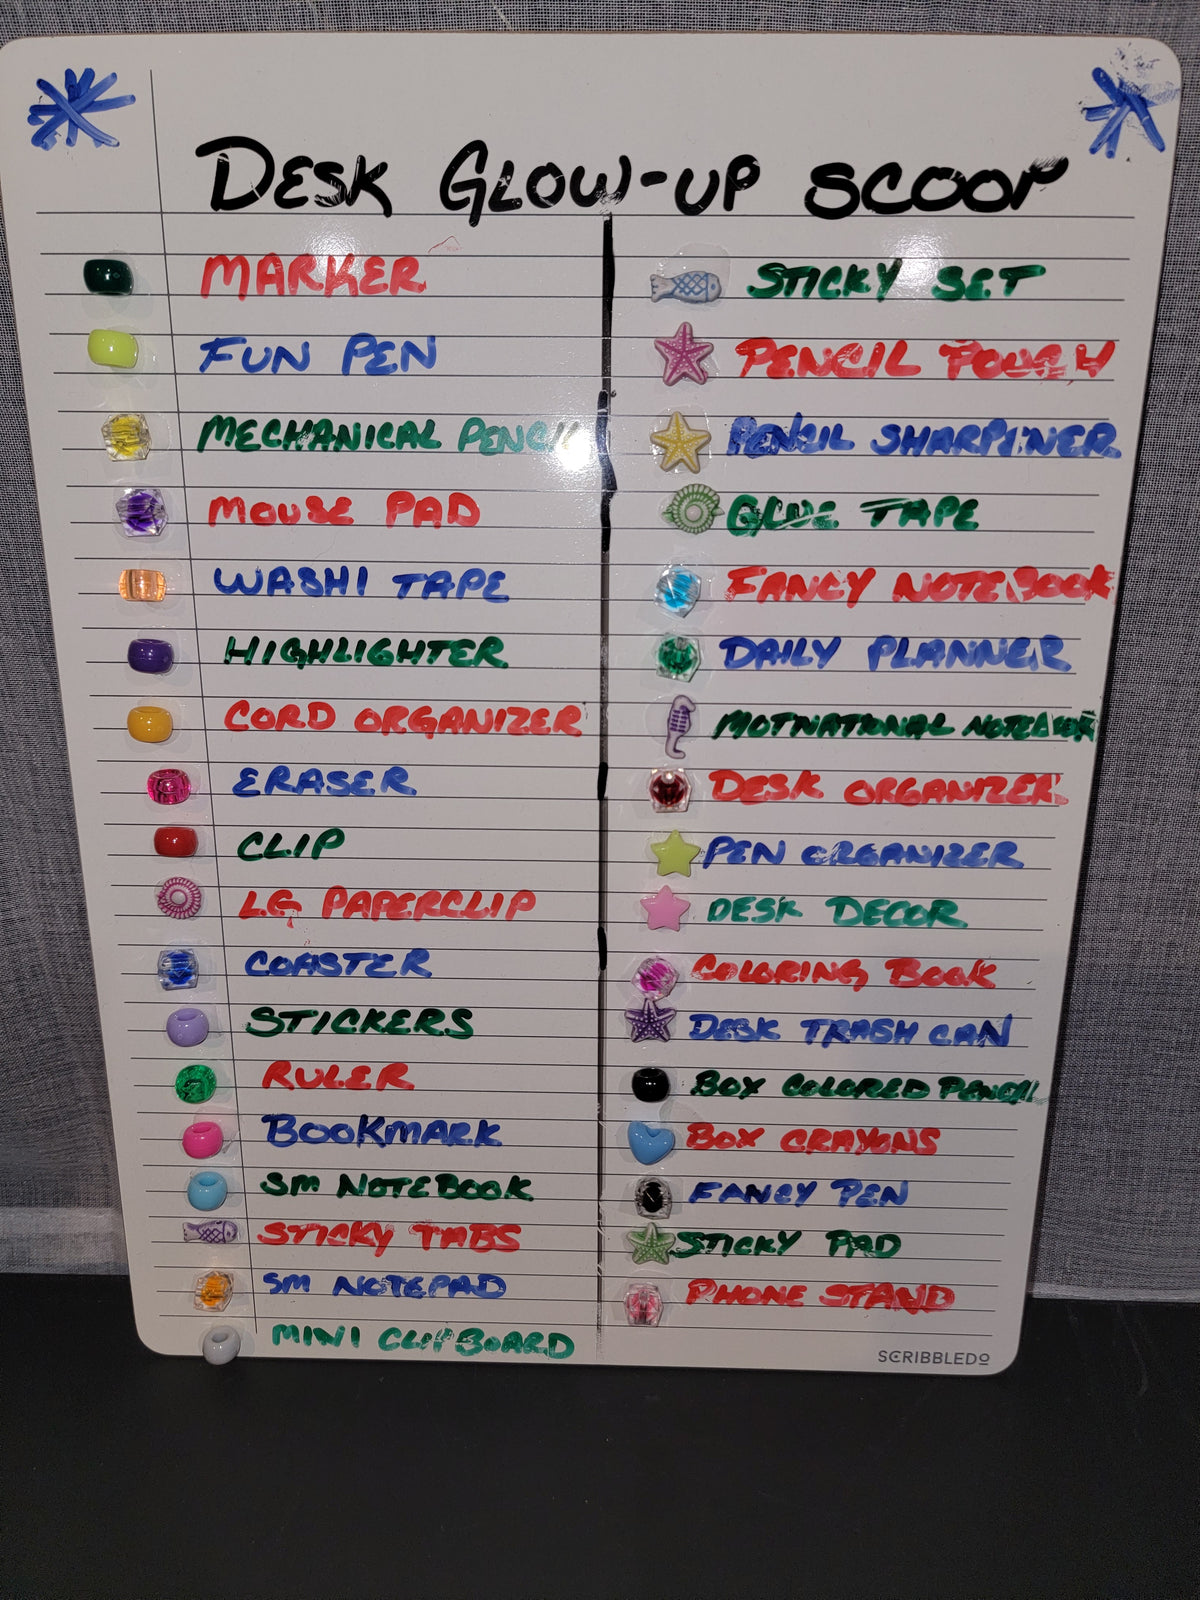 DESK GLOW-UP SCOOP
MARKER
FUN PEN
MECHANICAL PENCIL
MOUSE PAD
WASHI TAPE
HIGHLIGHTER
CORD ORGANIZER
ERASER
CLIP
LG PAPERCLIP
COASTER
STICKERS
RULER
BOOKMARK
SM NOTEBOOK
STICKY TABS
SM NOTEPAD
MINI CLIPBOARD
STICKY SET
PENCIL POUCH
PENCIL SHARPINER
GLUE TAPE
FANCY NOTEBOOK
DAILY PLANNER
MOTNATIONAL NOTEBOOK
DESK ORGANIZER
PEN ORGANIZER
DESK DECOR
COLORING BOOK
DESK TRASH CAN
BOX COLORED PENCIL
BOX CRAYONS
FANCY PEN
STICKY PAD
PHONE STAND
SCRIBBLEDO